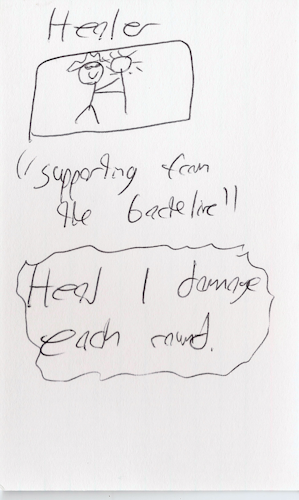 Healer
"supporting from
the backline"
Heal 1 damage
each round.